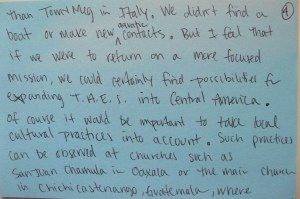 than Town Meg in Italy. We didn't find a ④
boat or make new aquatic contacts. But I feel that
if we were to return on a more focused
mission, we could certainly find possibilities for
expanding T.A.E.S. into Central America.
Of course it would be important to take local
cultural practices into account. Such practices
can be observed at churches such as
San Juan Chamula in Oaxala or the main church
in Chichicastenango, Guatemala, where